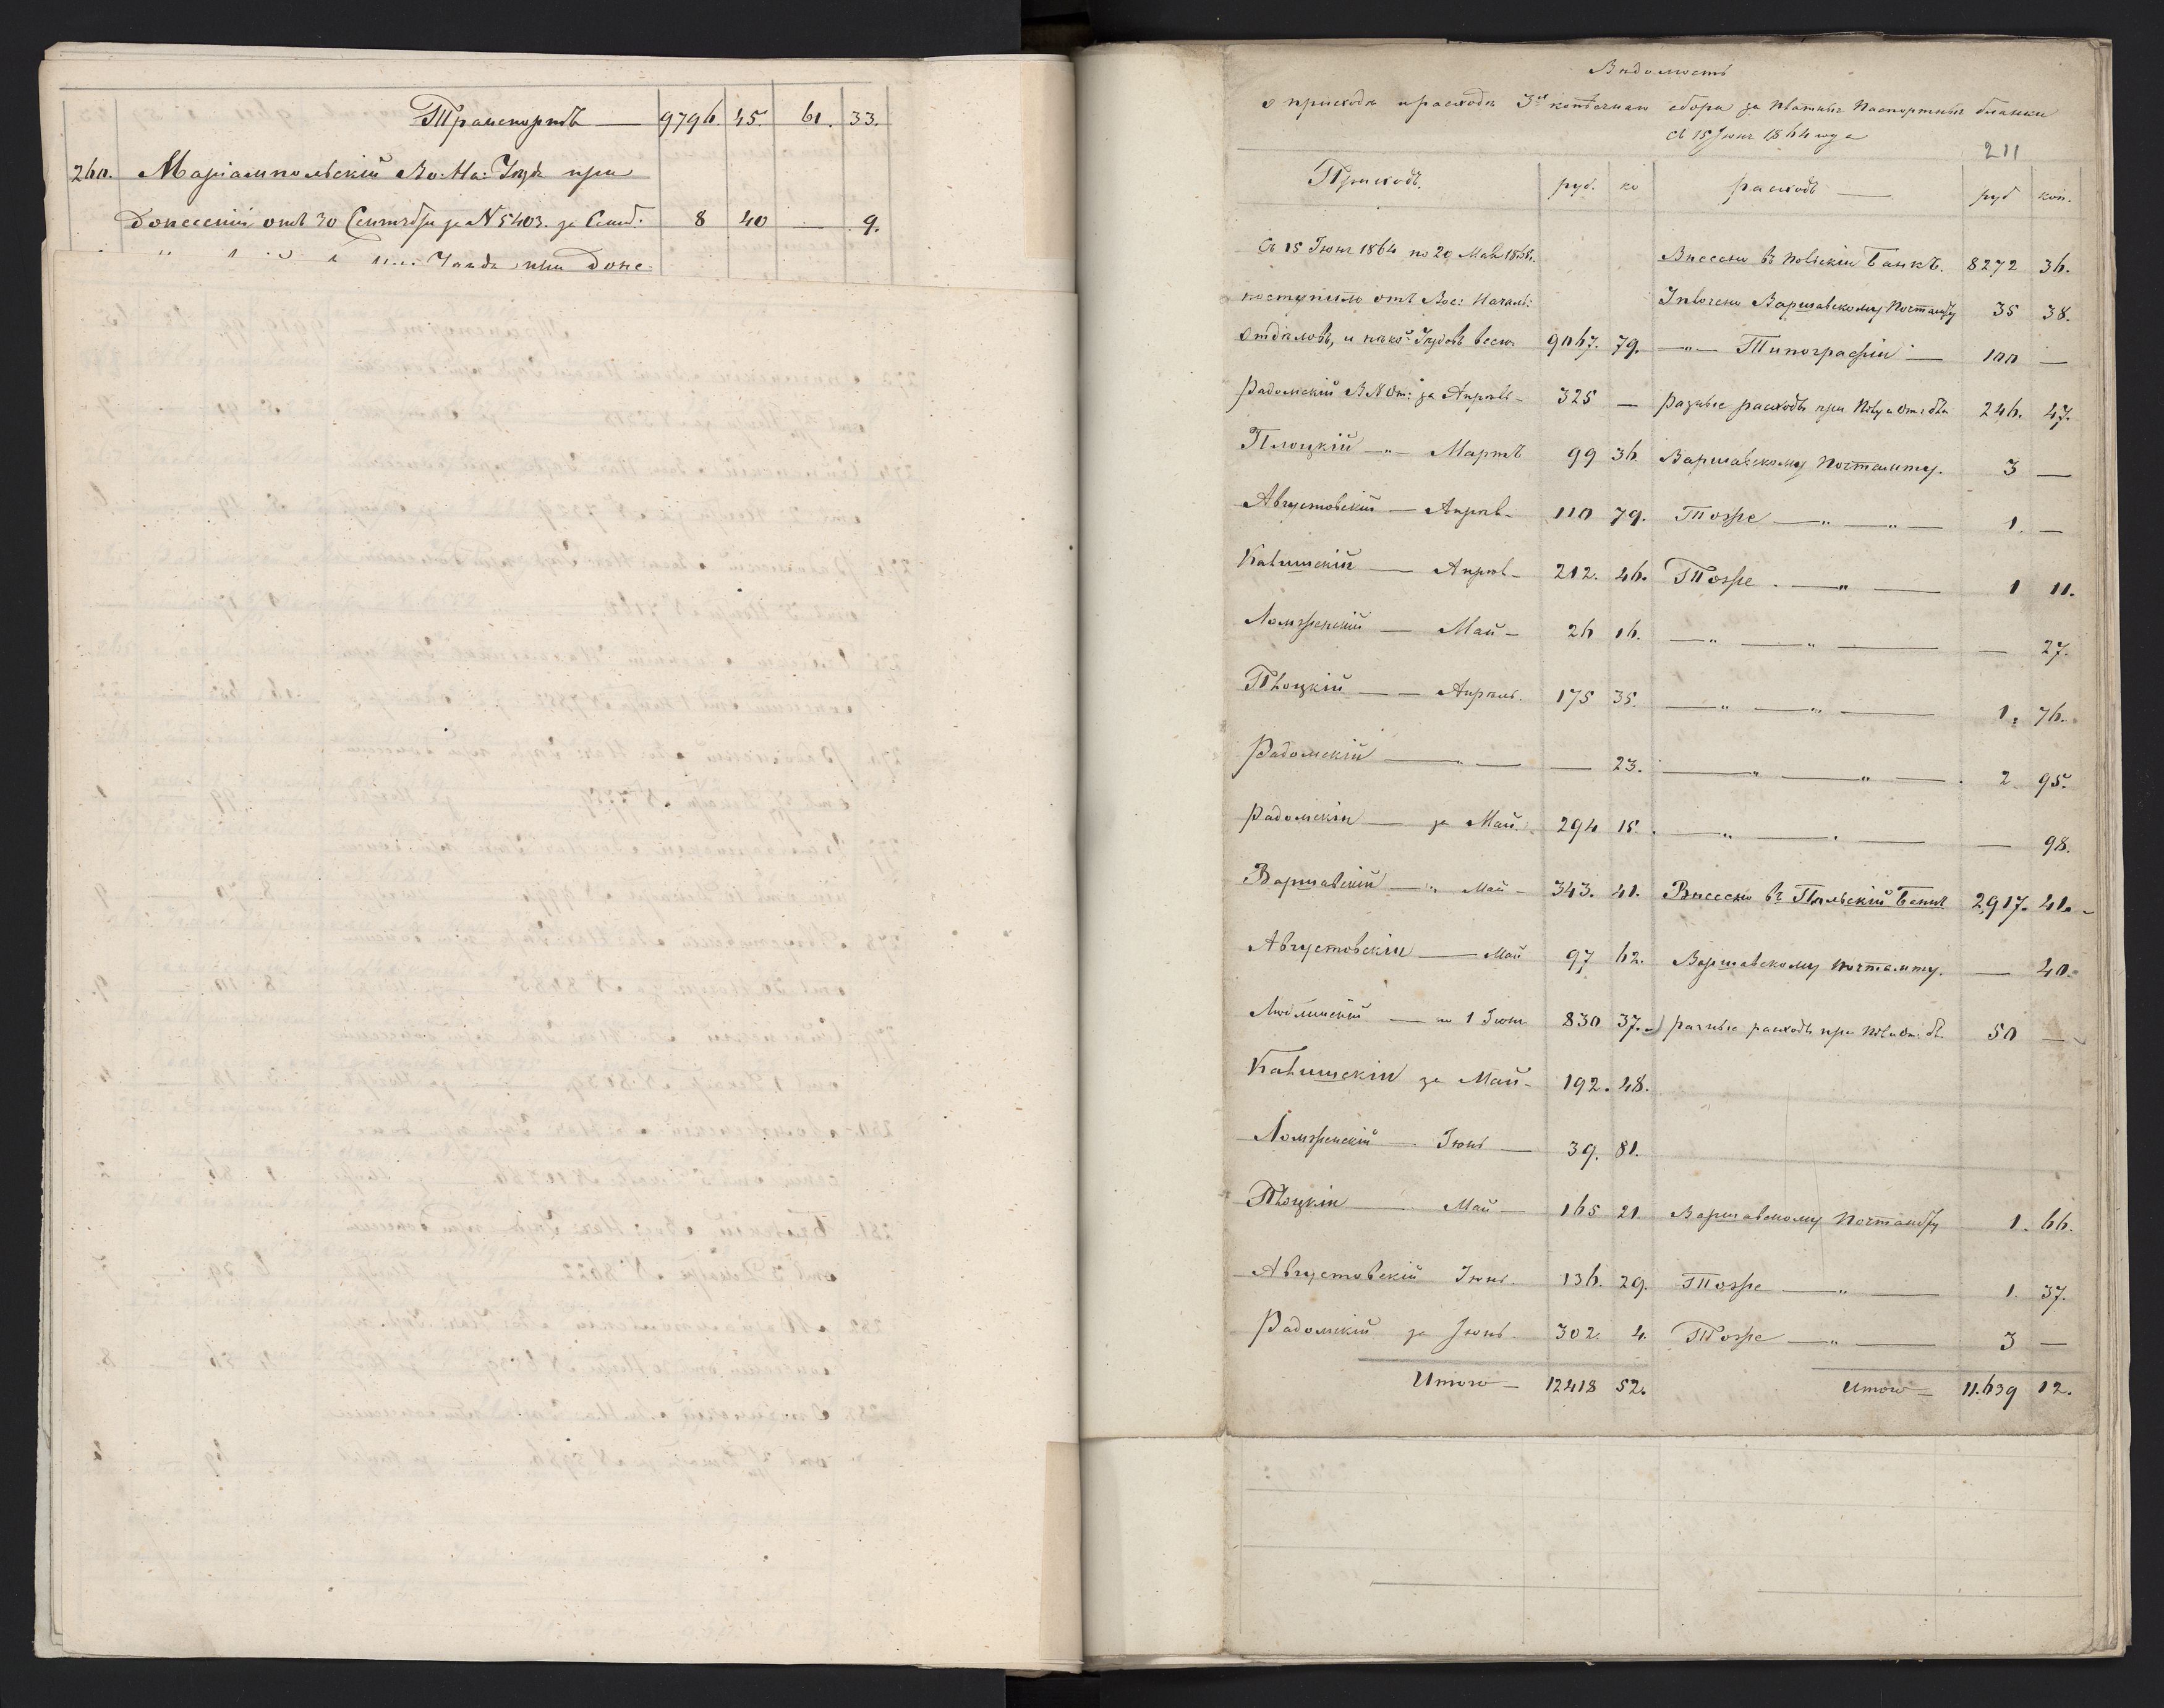 Транспортъ — 9796. 45. 61. 33.
260. Маріампольскій Во: На: Уѣзда при
донесеніи отъ 30 Сентября за N 5403. за Сент. 8 40 — 9.
Уѣзда при Доне
Вѣдомость
о приходѣ и расходѣ 3х копѣечнаго сбора за платныя Паспортныя бланки
съ 15 Іюня 1864 года
211
Приходъ. руб. ко расходъ — руб коп.
Съ 15 Іюня 1864 по 20 Мая 1865. Внесено въ Польскій Банкъ. 8272 36.
поступило отъ Вое: Началь: Варшавскому Почтамту 35 38.
Отдѣловъ, и Уѣздовъ всего 9067. 79. — " — Типографіи — 100 —
Радомскій В N От: за Апрѣль - 325 — разные расходы при 246. 47.
Плоцкій — " — Мартъ 99 36. Варшавскому Почтамту. 3 —
Августовскій — Апрѣль - 110 79. Тоже — " — " — 1. —
Калишскій — Апрѣль - 212. 46. Тоже . — " — 1 11.
Ломженскій — Май - 26 16. — " — " — — 27.
Плоцкій — — Апрѣль. 175 35. — " — " — 1. 76.
Радомскій — " — — 23. — " — " — 2 95.
Радомскій — за Май. 294 15. — " — . — — 98.
Варшавскій — " Май - 343. 41. Внесено въ Польскій Банкъ 2,917. 41.
Августовскій — Май 97 62. Варшавскому Почтамту. — 40.
Люблинскій — по 1 Іюня 830 37. разные расходы при 50 —
Калишскій за Май - 192. 48.
Ломженскій — Іюнь — 39. 81.
Плоцкій — Май — 165 21. Варшавскому Почтамту 1. 66.
Августовскій Іюнь. 136. 29. Тоже — " — 1. 37.
Радомскій за Іюнь. 302. 4. Тоже — " — 3 —
Итого — 12418 52. Итого — 11.639 12.